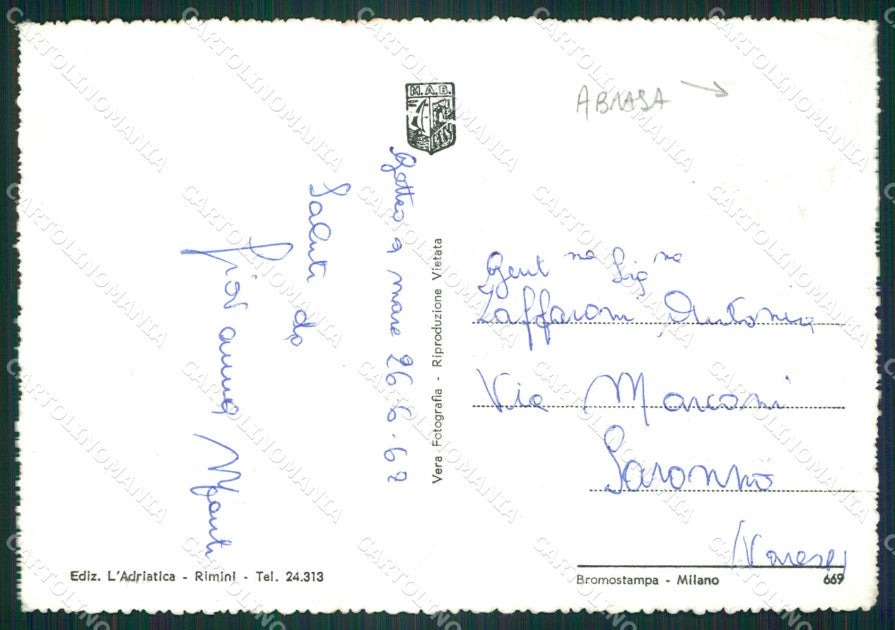 H.A.B.
ABRASA
Gatteo a mare 26-6-67
Saluti da
Giovanna Monti
Vera Fotografia - Riproduzione Vietata
Gent ma Sig na
Zaffaroni Antonia
Via Marconi
Saronno
(Varese)
Ediz. L'Adriatica - Rimini - Tel. 24.313
Bromostampa - Milano 669
CARTOLINOMANIA